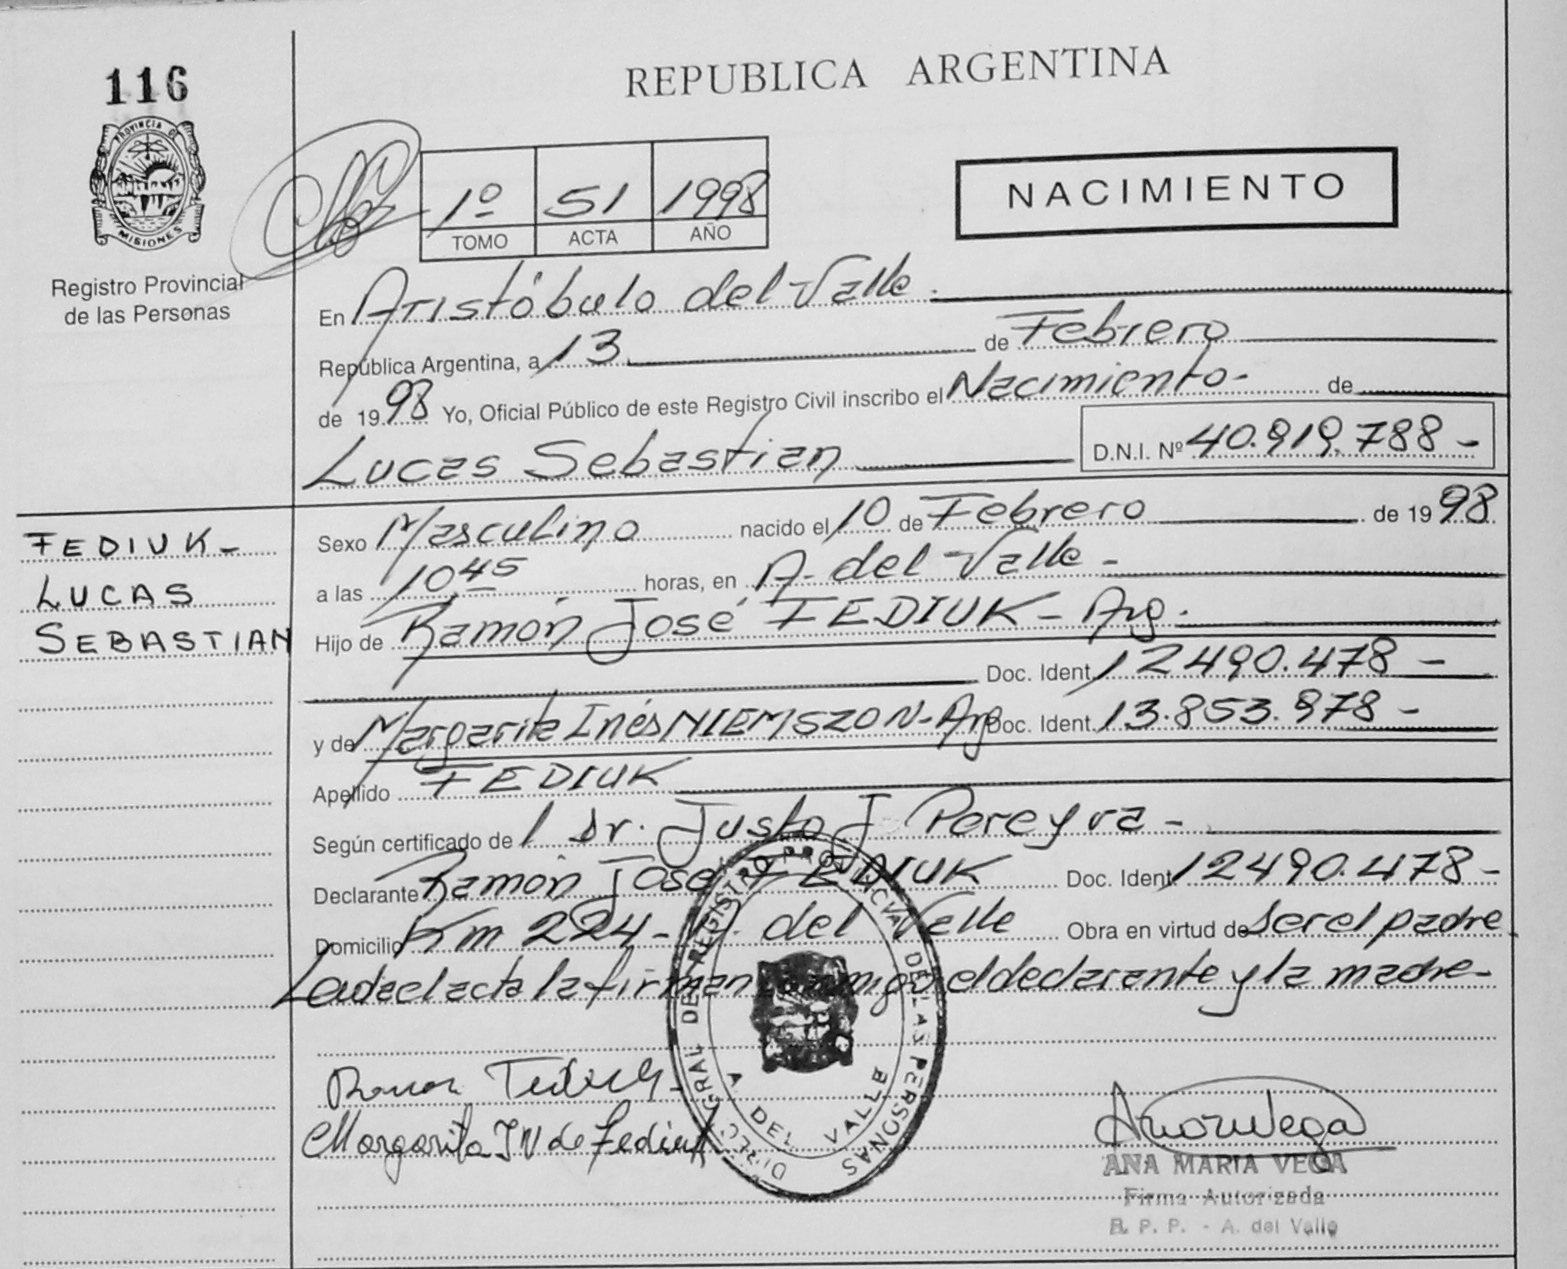 116
REPUBLICA ARGENTINA
PROVINCIA DE MISIONES
Registro Provincial
de las Personas
1º 51 1998
TOMO ACTA AÑO
NACIMIENTO
En Aristóbulo del Valle.
República Argentina, a 13 de Febrero
de 1998 Yo, Oficial Público de este Registro Civil inscribo el Nacimiento- de
Lucas Sebastian D.N.I. Nº 40.919.788-
FEDIUK-
LUCAS
SEBASTIAN
Sexo Masculino nacido el 10 de Febrero de 1998
a las 10 45 horas, en A. del Valle-
Hijo de Ramón José FEDIUK- Arg.
Doc. Ident. 12490.478-
y de Margarita Inés NIEMSZON- Arg Doc. Ident. 13.853.978-
Apellido FEDIUK
Según certificado de l Dr. Justo J Pereyra-
Declarante Ramón José FEDIUK Doc. Ident. 12490.478-
Domicilio Km 224- A. del Valle Obra en virtud de ser el padre
Leida el acta la firman conmigo el declarante y la madre-
DIREC. GRAL DE REGISTRO PROVINCIAL DE LAS PERSONAS
A. DEL VALLE
Ramon Fediuk
Margarita I N de Fediuk
ANA MARIA VEGA
Firma Autorizada
R. P. P. - A. del Valle